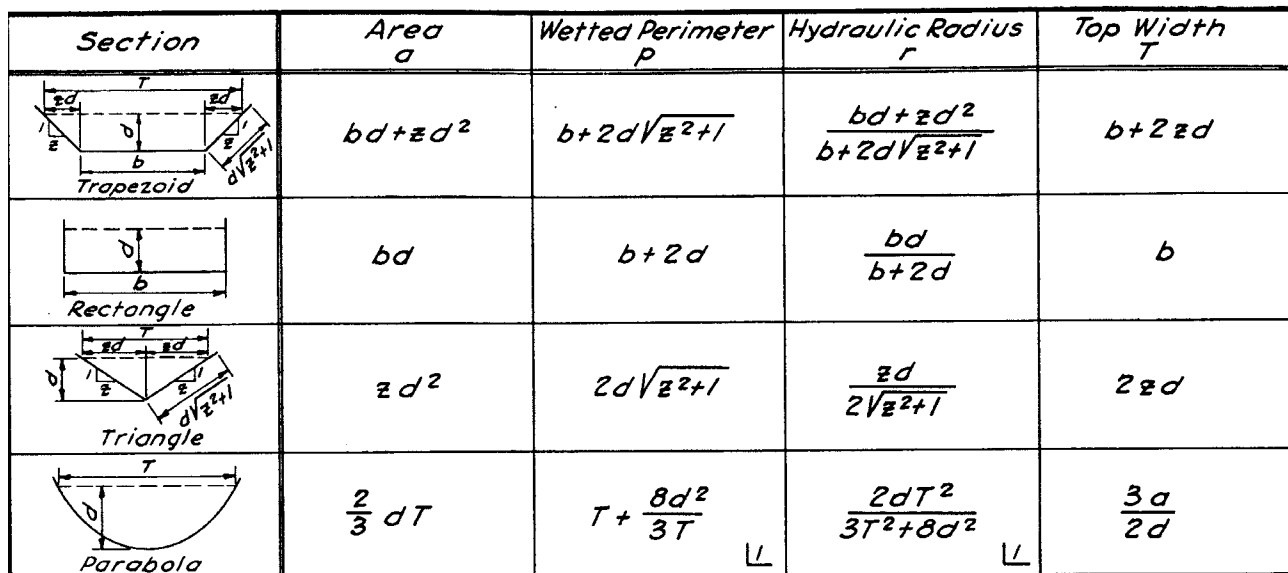 Section
Area
a
Wetted Perimeter
p
Hydraulic Radius
r
Top Width
T
T
zd
zd
1
z
d
z
1
b
d√z²+1
Trapezoid
bd+zd²
b+2d√z²+1
bd+zd²
b+2d√z²+1
b+2zd
d
b
Rectangle
bd
b+2d
bd
b+2d
b
T
zd
zd
d
1
z
1
z
d√z²+1
Triangle
zd²
2d√z²+1
zd
2√z²+1
2zd
T
d
Parabola
2
3
dT
T + 8d²
3T
1
2dT²
3T²+8d²
1
3a
2d